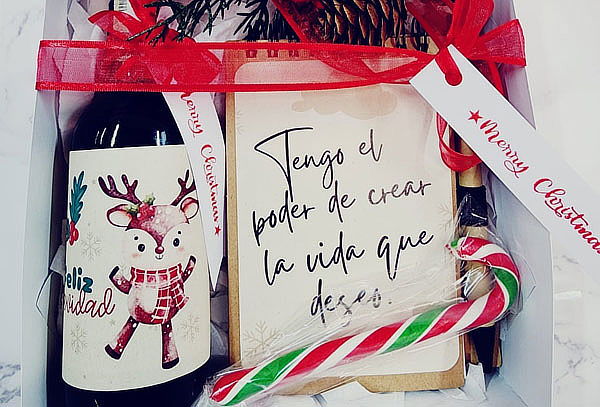 Merry Christmas
Tengo el
poder de crear
la vida que
deseo.
Merry Christmas
Feliz
Navidad